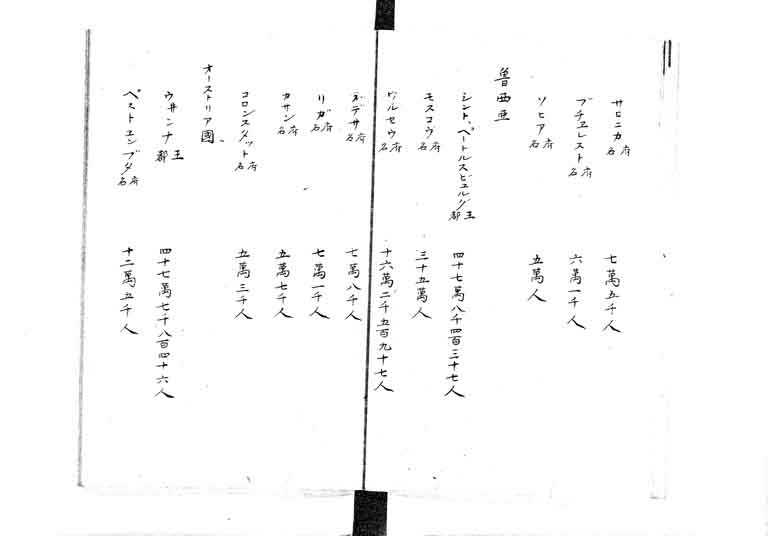 サロニカ 府名 七萬五千人
ブチヱレスト 府名 六萬一千人
ソヒア 府名 五萬人
魯西亜
シント、ペートルスビュルグ 王都 四十七萬八千四百三十七人
モスコヴ 府名 三十五萬人
ワルセウ 府名 十六萬二千五百九十七人
ヲデサ 府名 七萬八千人
リガ 府名 七萬一千人
カサン 府名 五萬七千人
コロンスタット 府名 五萬三千人
オーストリア國
ウ井ンナ 王都 四十七萬七千八百四十六人
ペストエンブダ 府名 十二萬五千人